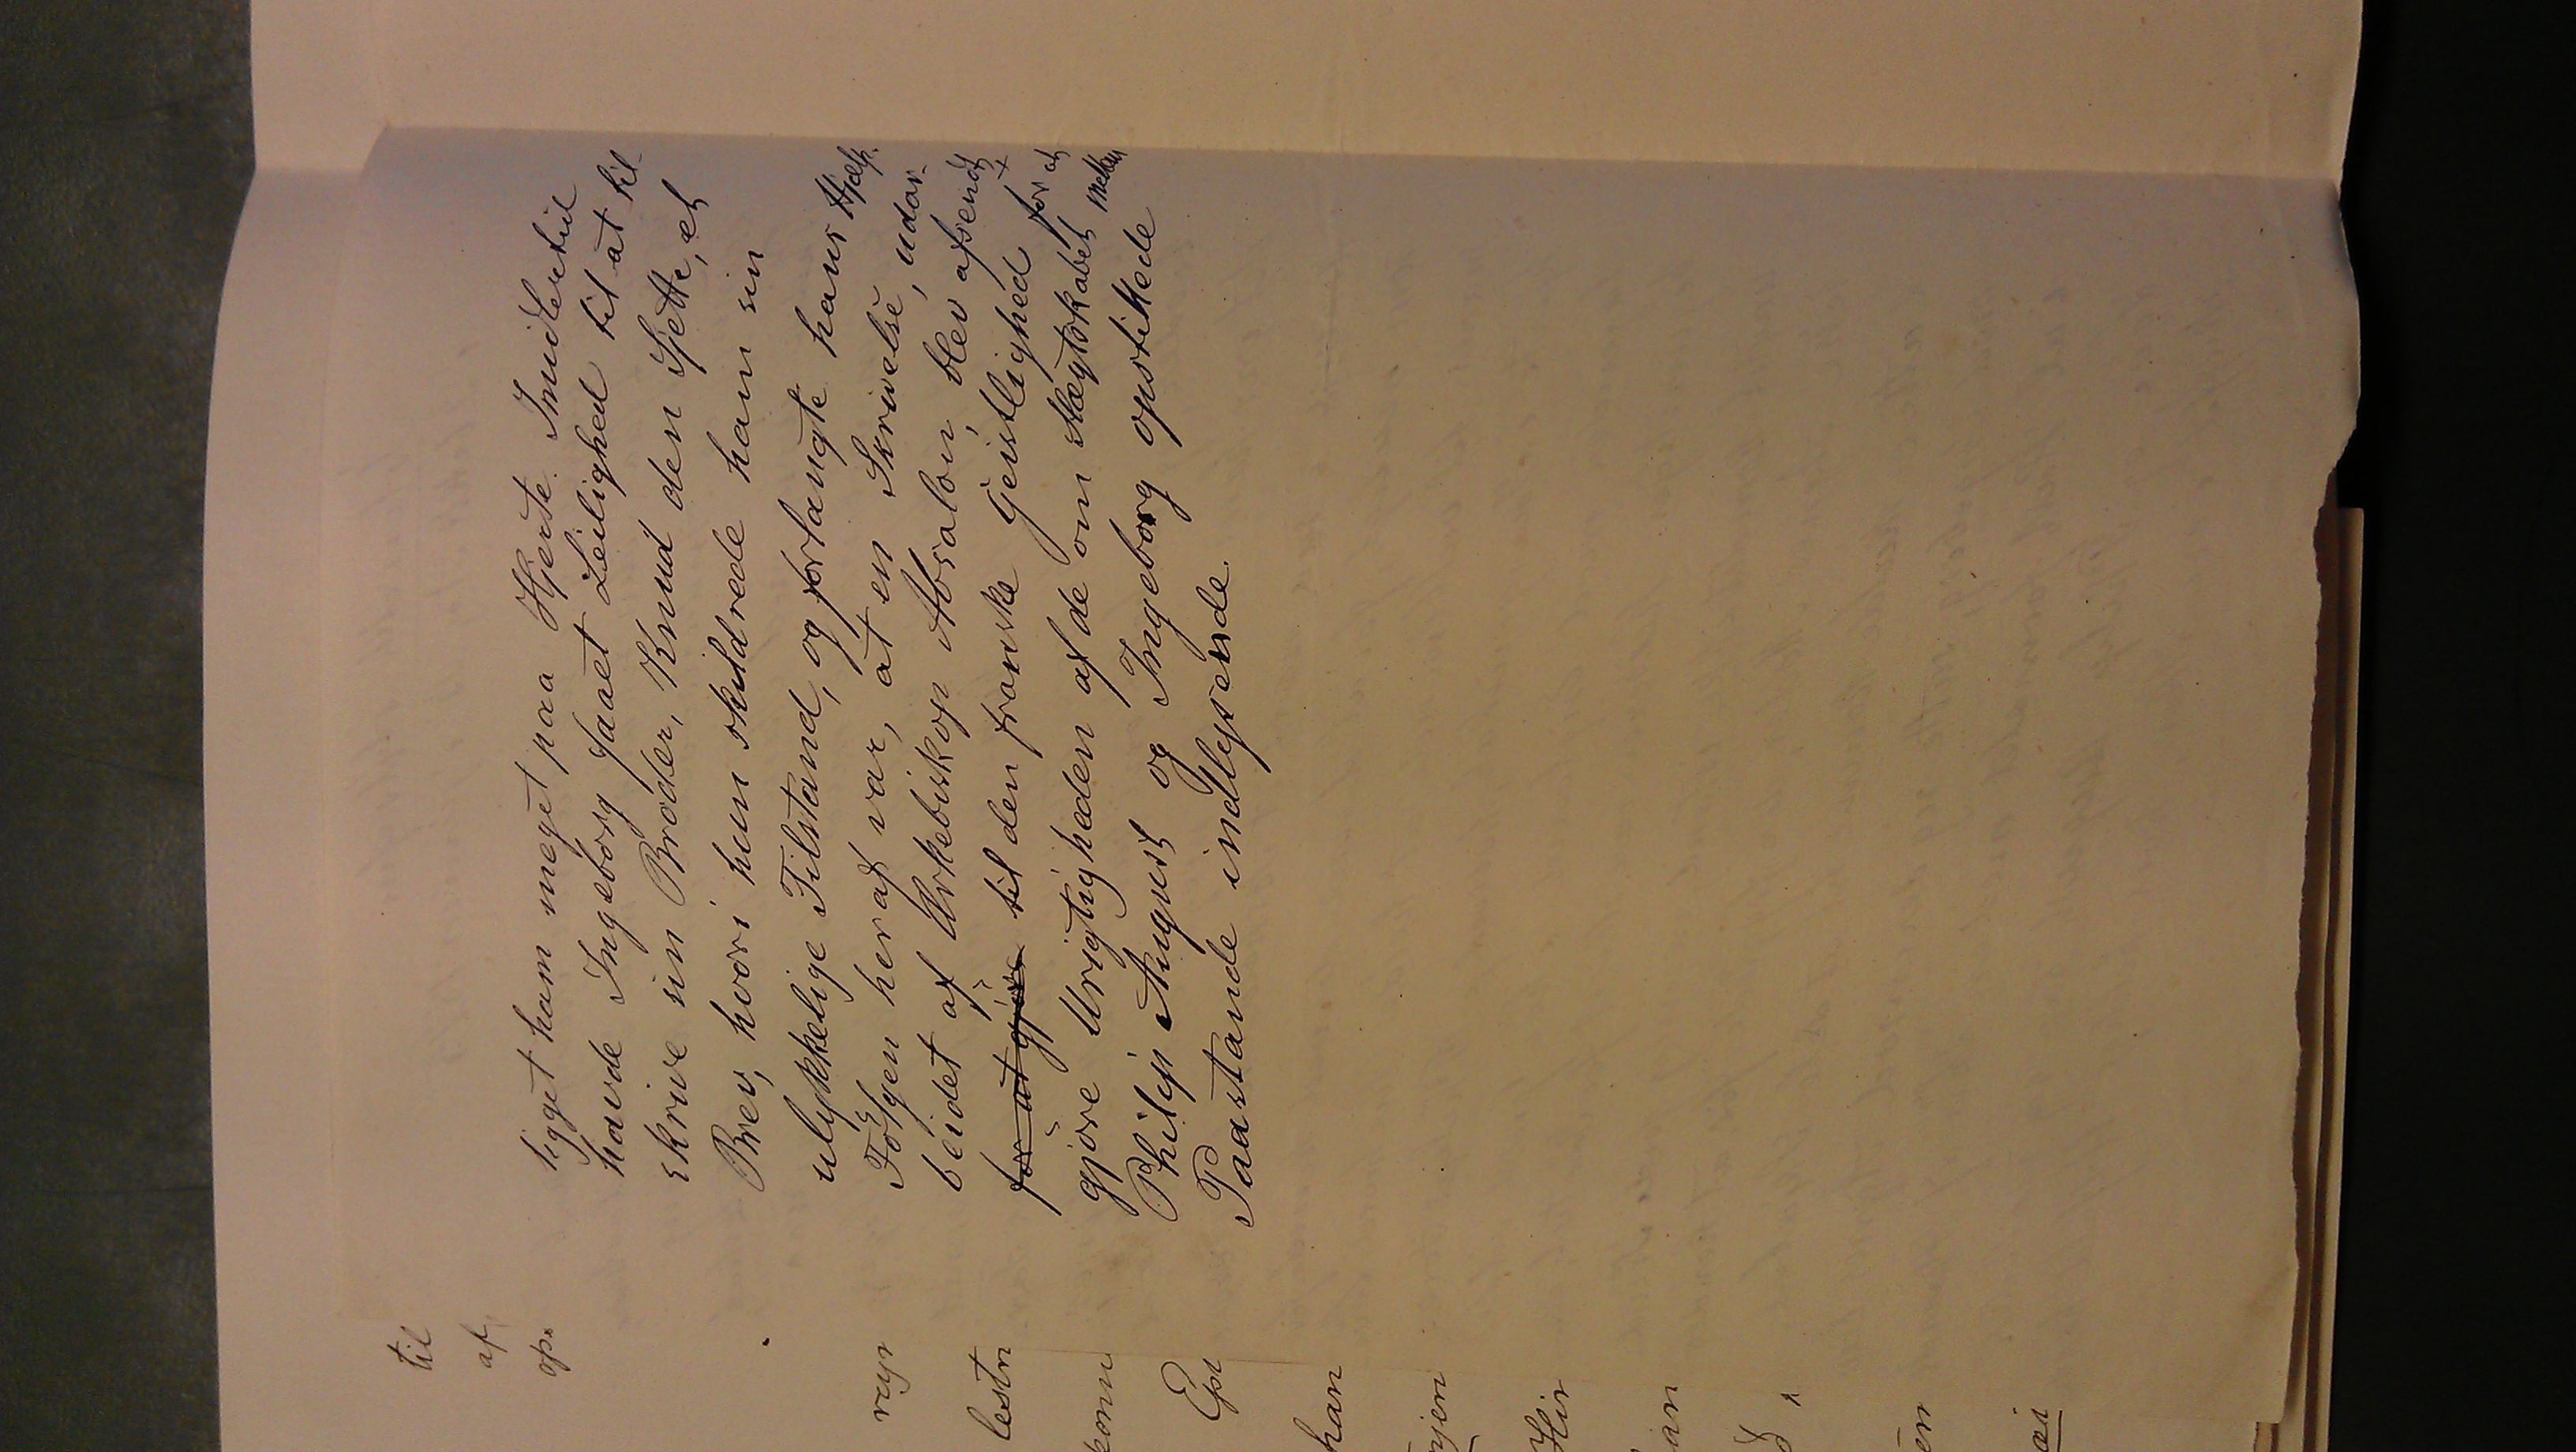 ligget ham meget paa Hjerte. Imidlertid
havde Ingeborg faaet Leilighed til at til-
skrive sin Broder, Knud den Sjette, et
Brev, hvori hun skildrede ham sin
ulykkelige Tilstand, og forlangte hans Hjælp.
Følgen heraf var, at en Skrivelse, udar-
beidet af Ærkebiskop Absalon, blev afsendt
for at gjøre til den franske Geistlighed for at
gjøre Urigtigheden af de om Slægtskabet mellem
Philip August og Ingeborg opstillede
Paastande indlysende.
til
af
op.
lestn
komm
han
Hir